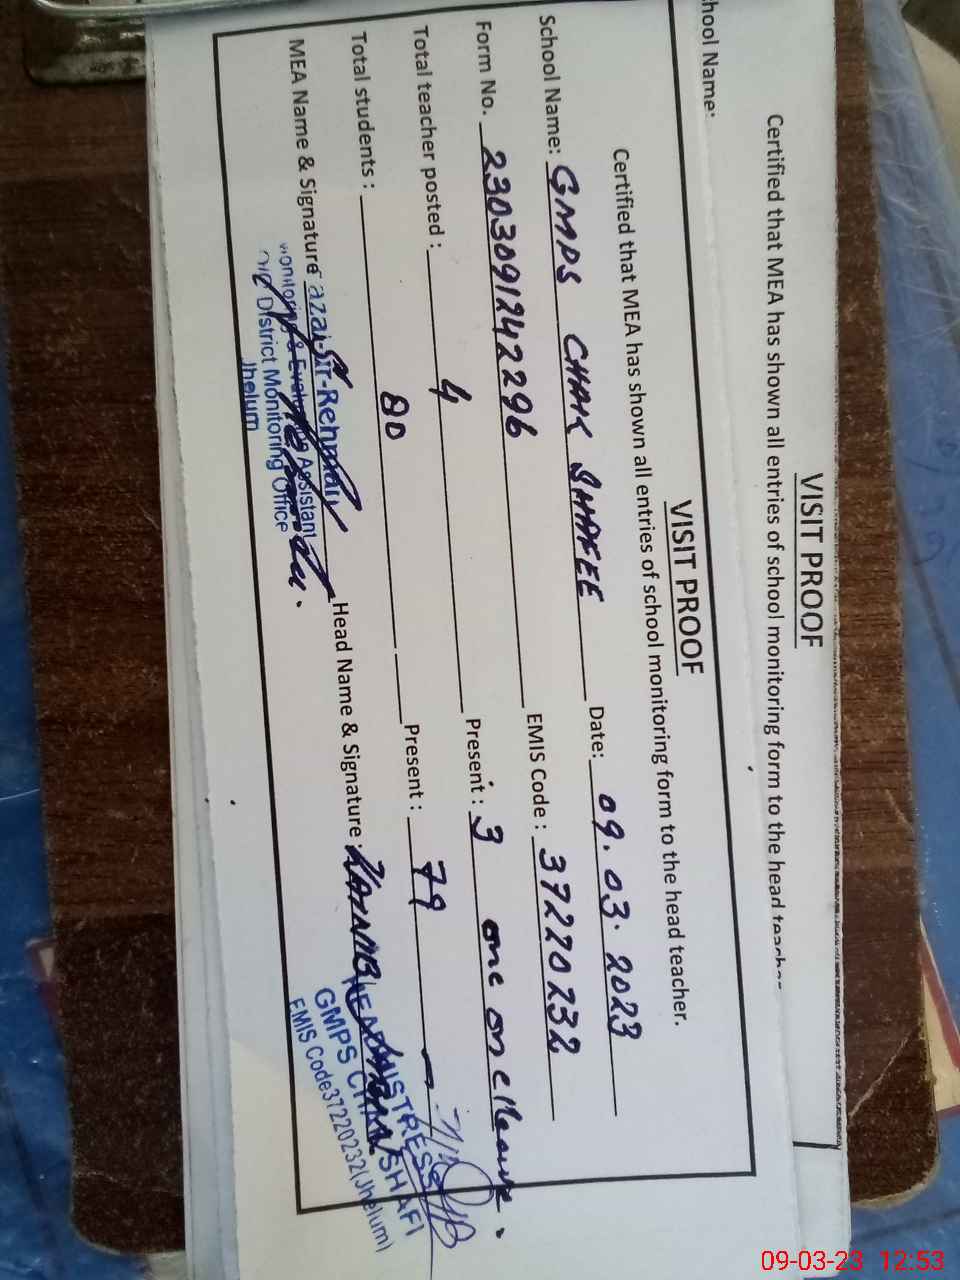 hool Name:
Certified that MEA has shown all entries of school monitoring form to the head teacher
VISIT PROOF
VISIT PROOF
Certified that MEA has shown all entries of school monitoring form to the head teacher.
School Name: GMPS CHAK SHAFEE Date: 09.03.2023
Form No. 2303091242296 EMIS Code: 37220232
Total teacher posted: 4 Present: 3 one on leave.
Total students: 80 Present: 79
MEA Name & Signature Head Name & Signature: ZAINAB
-Ur-Rehman
Monitoring & Evaluating Assistant
District Monitoring Office
Jhelum
HEADMISTRESS
GMPS CHAK SHAFI
EMIS Code37220232(Jhelum)
09-03-23 12:53